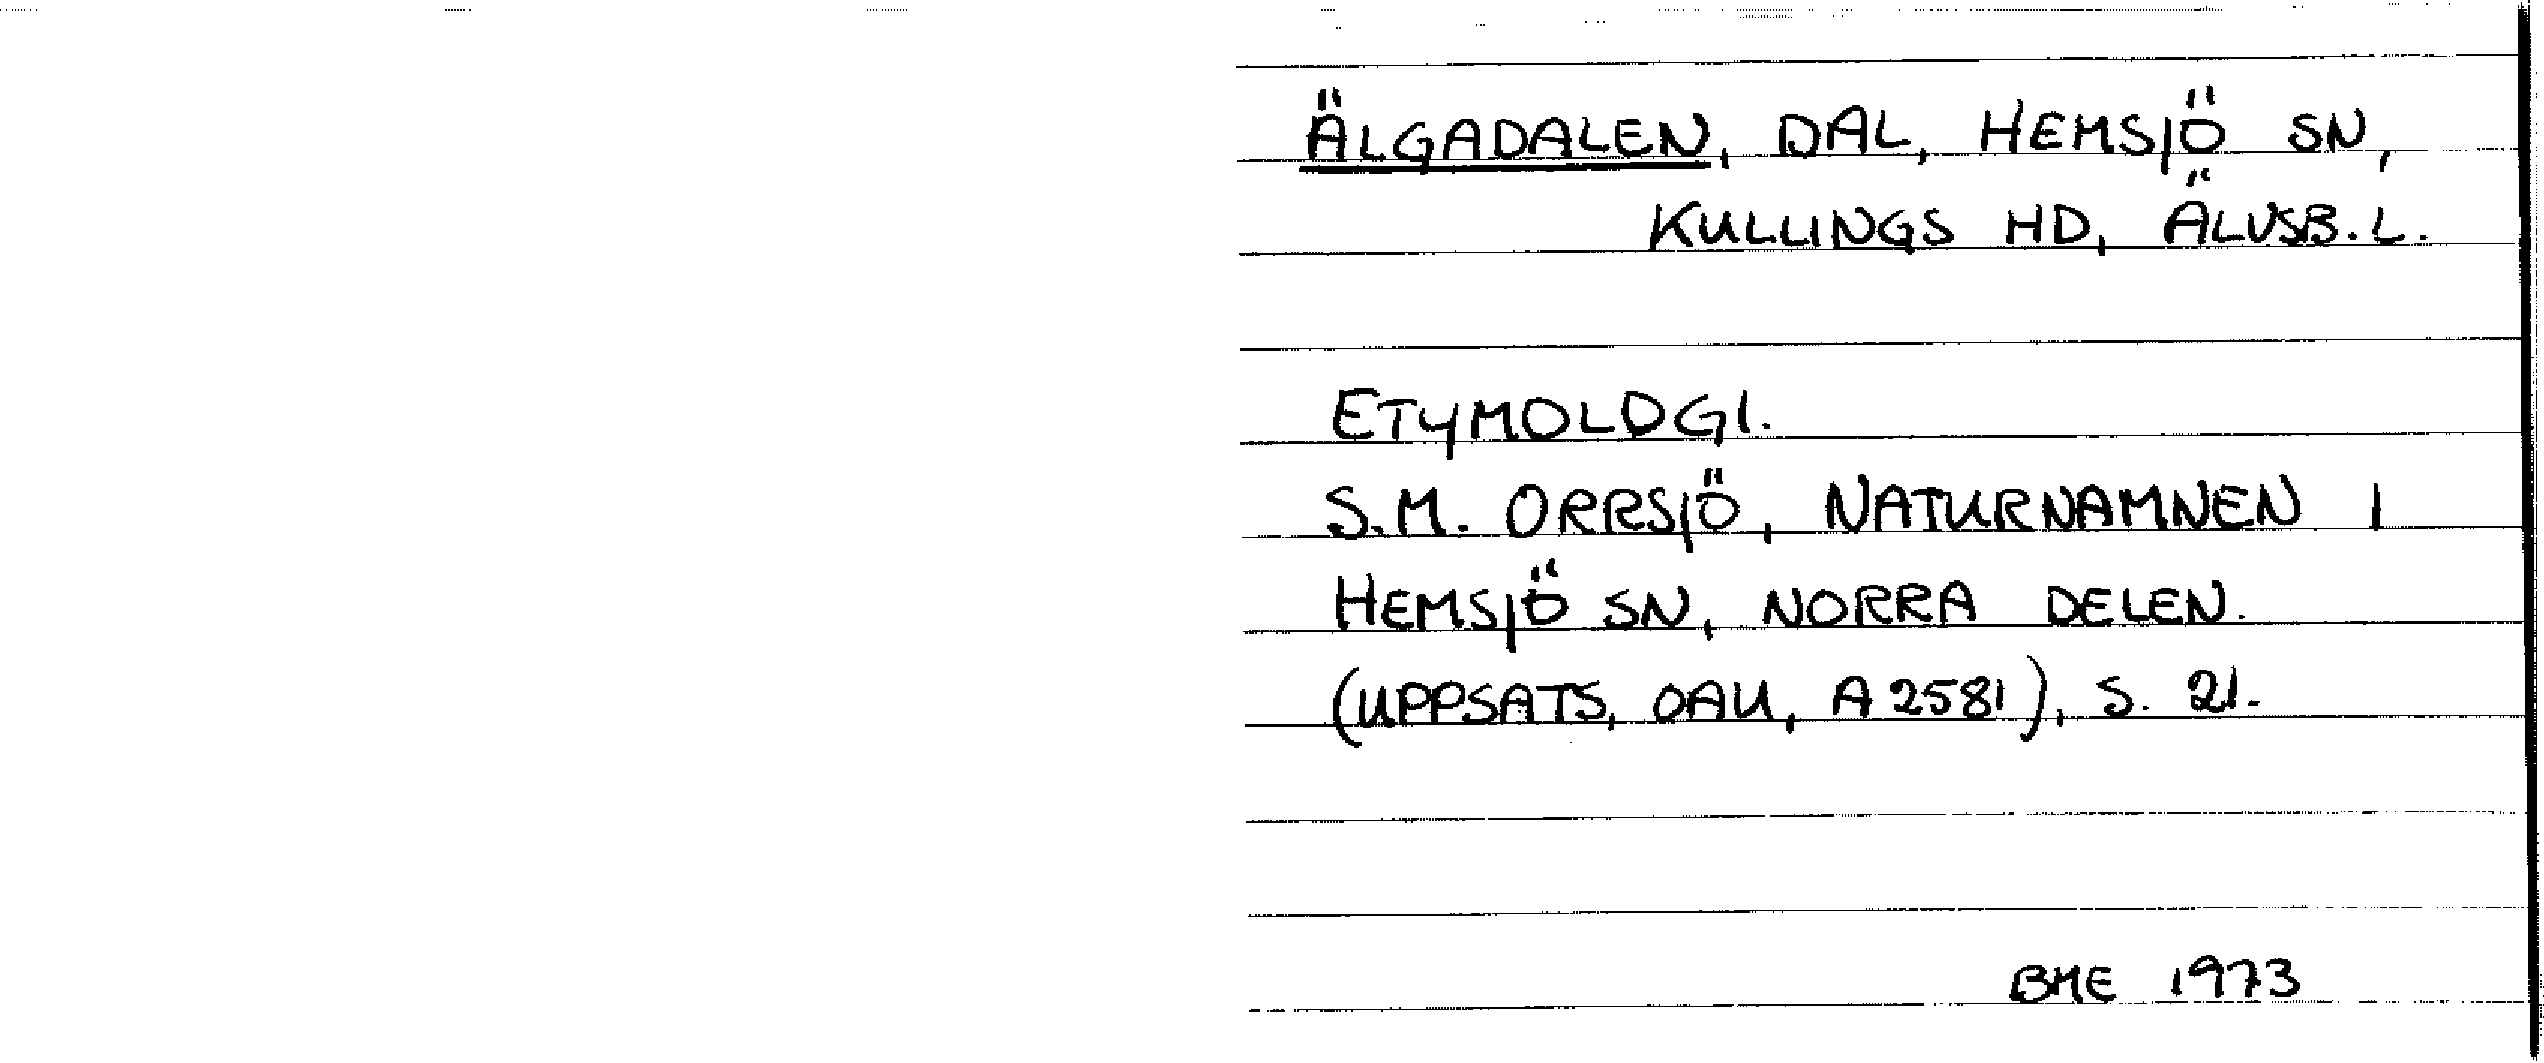 ÄLGADALEN, DAL, HEMSJÖ SN,
KULLINGS HD, ÄLVSB.L.
ETYMOLOGI.
S.M. ORRSJÖ, NATURNAMNEN I
HEMSJÖ SN, NORRA DELEN.
(UPPSATS, OAU, A 2581), S. 21.
BME 1973